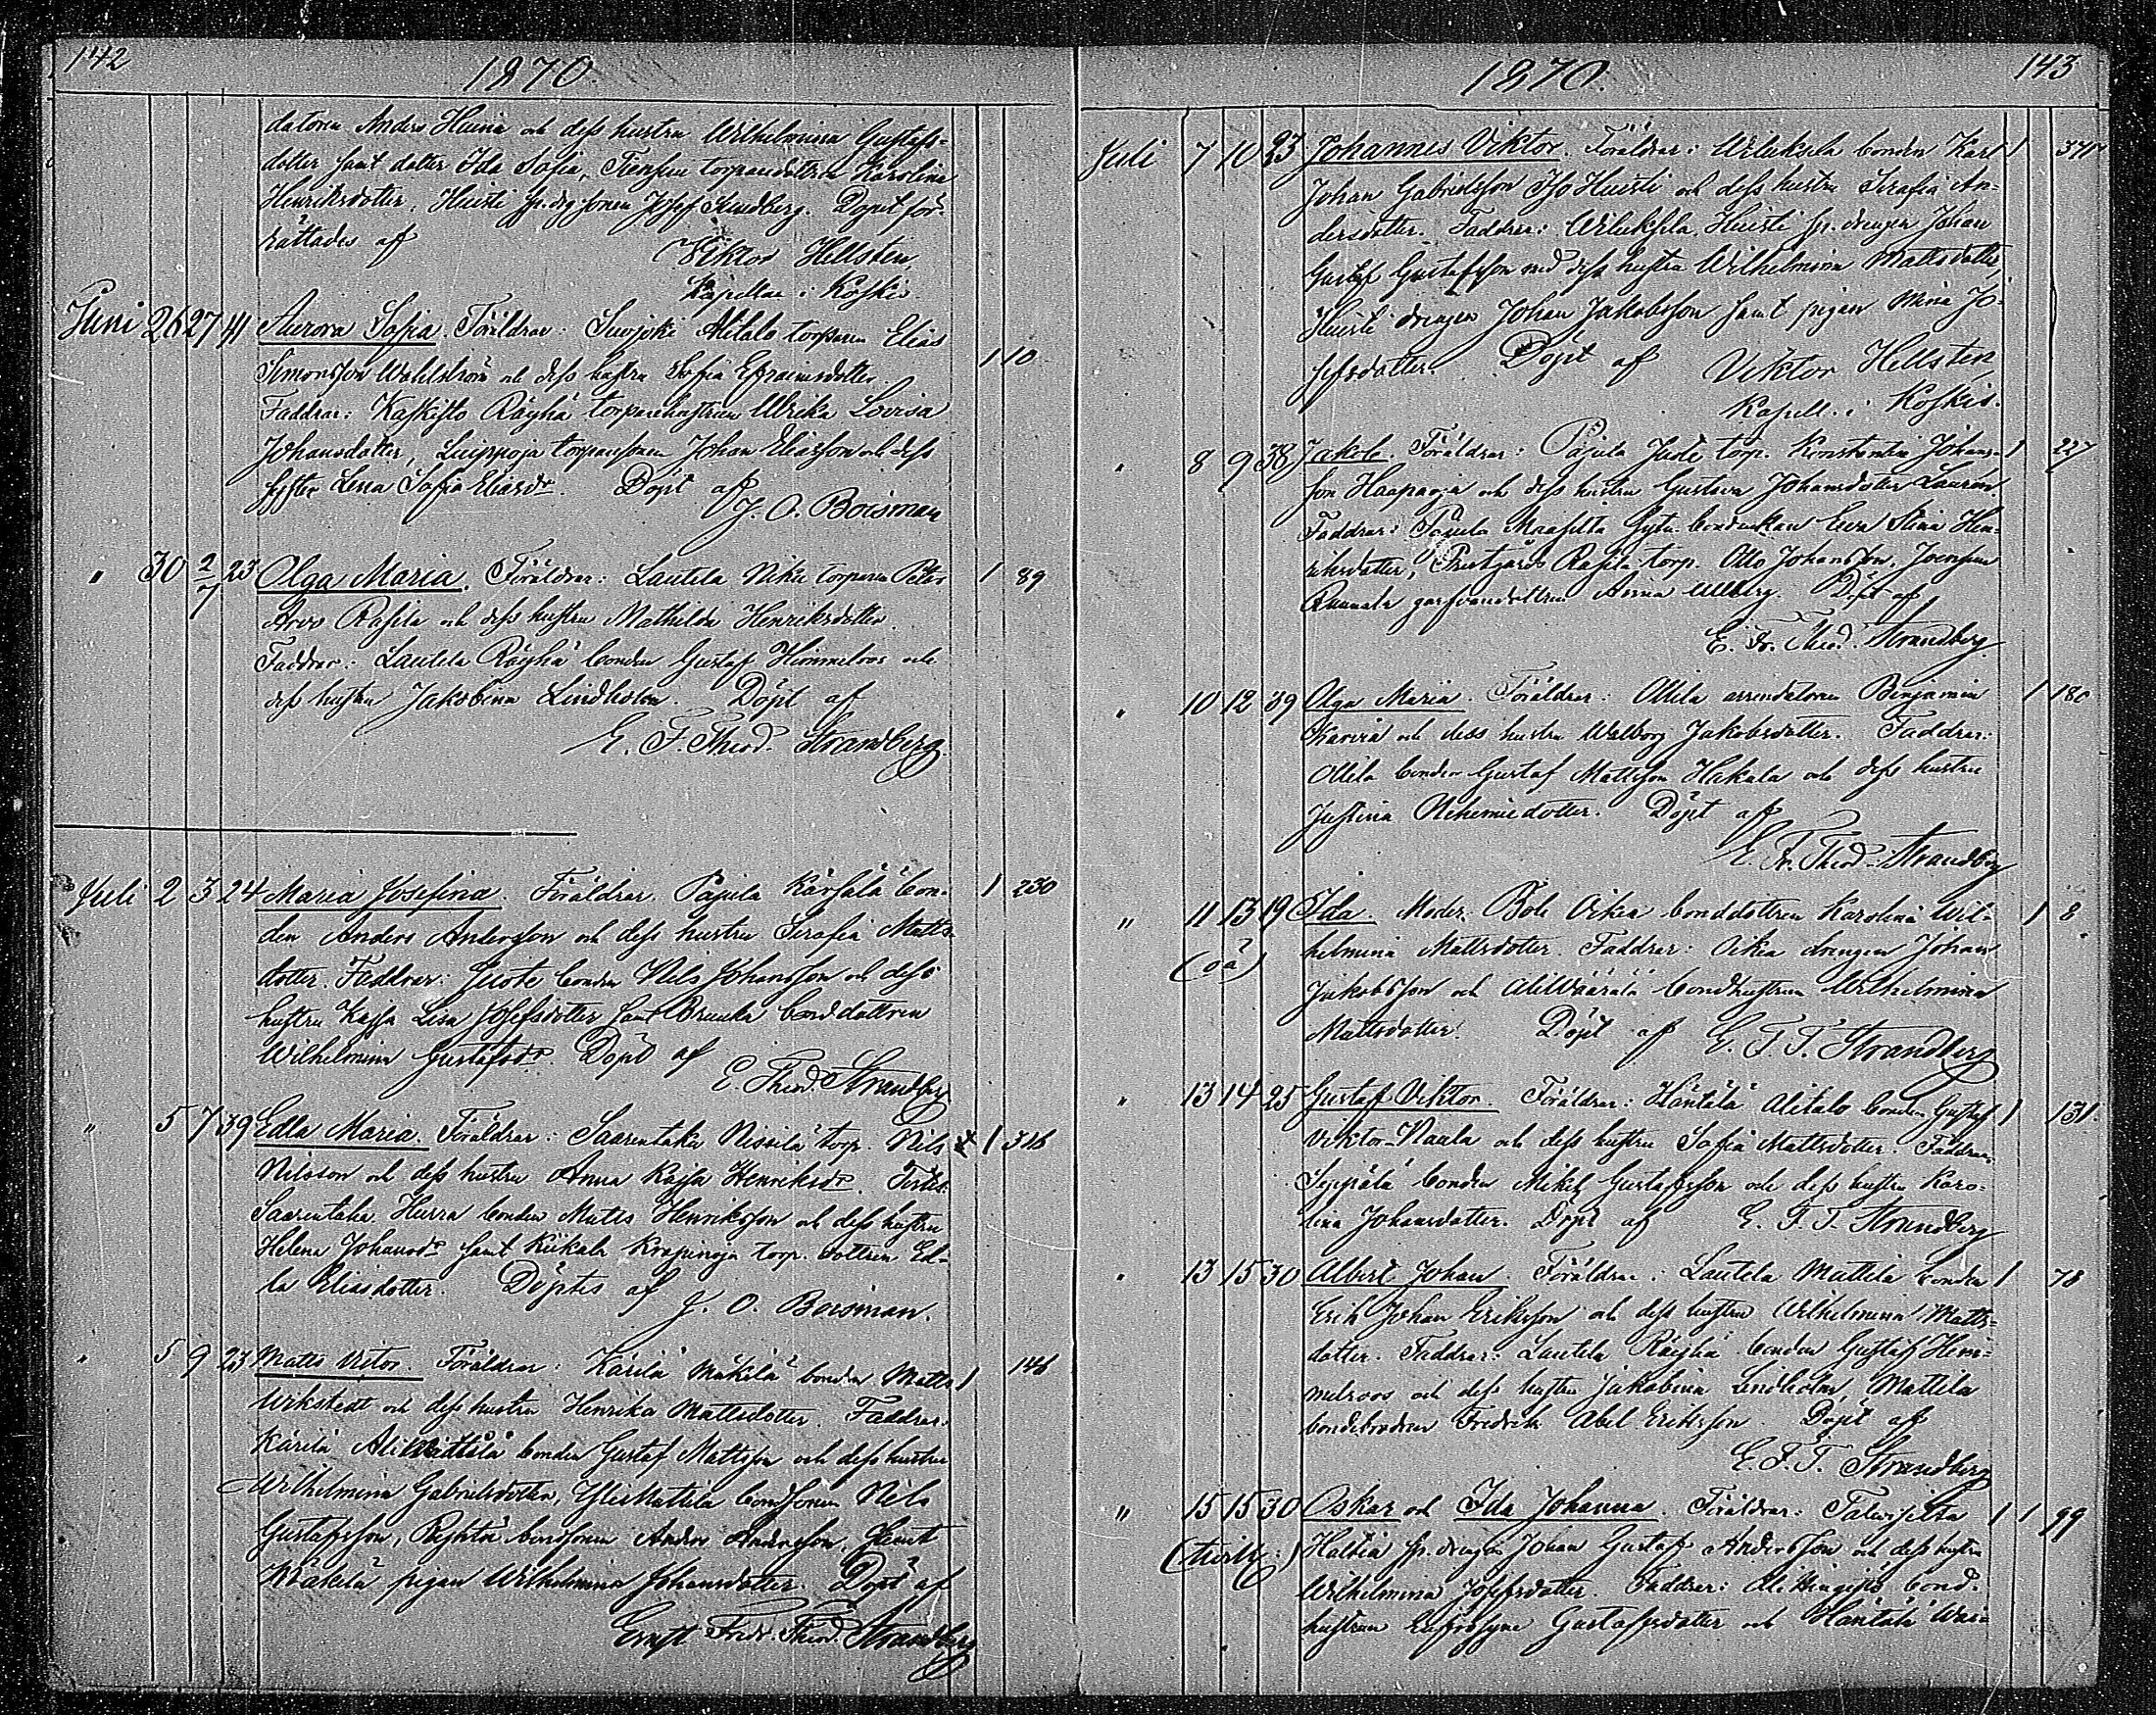 142
1870.
datoren Anders Huina och dess hustru Wilhelmina Gustafs-
dotter samt dotter Ida Sofia, torparedottren Karolina
Henriksdotter, Huisti sonen Josef Sundberg. Dopet för-
rättades af
Viktor Hellsten,
Kapellan i Koskis.
Juni 26 27 41 Aurora Sofia. Föräldrar: Suojoki Alitalo torparen Elias 1 10
Simonsson Wahlström och dess hustru Sofia Efraimsdotter.
Faddrar: Kaskisto Räyhä torparehustrun Ulrika Lovisa
Johansdotter, Luippoja torparesonen Johan Eliasson och dess
syster Lena Sofia Eliasdr. Döpt af
J. O. Boisman
" 30 2/7 23 Olga Maria. Föräldrar: Lautela Niku torparen Peter 1 89
Arvo Rasila och dess hustru Mathilda Henriksdotter.
Faddrar: Lautela Räyhä bonden Gustaf Himmelroos och
dess hustru Jakobina Lindholm. Döpt af
E. F. Theod. Strandberg.
Juli 2 3 24 Maria Josefina. Föräldrar. Pajula Kärsälä bon- 1 230
den Anders Andersson och dess hustru Serafia Matts-
dotter. Faddrar: Juote bonden Nils Johansson och dess
hustru Kajsa Lisa Josefsdotter samt Bruuka bonddottren
Wilhelmina Gustafsdr. Döpt af
E. Theod. Strandberg
" 5 7 39 Edla Maria. Föräldrar: Saarentaka Nissilä torp. Nils 1 316
Nilsson och dess hustru Anna Kajsa Henriksdr. Test:
Saarentaka Hurra bonden Matts Henriksson och dess hustru
Helena Johansdr samt Kiikala Krapinoja torp. dottren Ed-
la Eliasdotter. Döptes af
J. O. Boisman.
" 5 9 23 Matts Victor. Föräldrar: Kärilä Mäkilä bonden Matts 1 146
Wikstedt och dess hustru Henrika Mattsdotter. Faddrar:
Kärilä Alimattila bonden Gustaf Mattsson och dess hustru
Wilhelmina Gabrielsdotter, Ylimattila bondsonen Nils
Gustafsson, Rejhtö bondsonen Anders Andersson, samt
Kräkilä pigan Wilhelmina Johansdotter. Döpt af
Ernst Fredr. Theod. Strandberg
1870.
143
Juli 7 10 23 Johannes Viktor. Föräldrar: Wiluksela bonden Karl 1 341
Johan Gabrielsson Iso Huisti och dess hustru Serafia An-
dersdotter. Faddrar: Wiluksela, Huisti sp. drengen Johan
Gustaf Gustafsson med dess hustru Wilhelmina Mattsdotter,
Huisti drengen Johan Jakobsson samt pigan Mina Jo-
sefsdotter. Döpt af Viktor Hellsten,
Kapell. i Koskis.
" 8 9 38 Jakob. Föräldrar: Pajula Juote torp. Konstantin Johans- 1 227
son Haapaoja och dess hustru Gustava Johansdotter Laurén.
Faddrar: Pajula Maasilta bondenkan Eva Stina Hen-
riksdotter, Prestgårds Rasila torp. Otto Johansson, Joensuu
Anna Ullberg. Döpt af
E. Fr. Theod. Strandberg
" 10 12 39 Olga Maria. Föräldrar: Ollila arrendatoren Benjamin 1 180
Kaviria och dess hustru Walborg Jakobsdotter. Faddrar:
Ollila bonden Gustaf Mattsson Hakala och dess hustru
Justina Nehemiedotter. Döpt af
E. Fr. Theod. Strandberg
" 11 13 19 Ida. Moder: Böle Oikea bonddottren Karolina Wil- 1 8
(oä) helmina Mattsdotter. Faddrar: Oikea drengen Johan
Jakobsson och Alivääräla bondhustrun Wilhelmina
Mattsdotter. Döpt af E. F. T. Strandberg
" 13 14 25 Gustaf Viktor. Föräldrar: Häntälä Alitalo bonden Gustaf 1 131.
Viktor Naula och dess hustru Sofia Mattsdotter. Faddrar:
Seppälä bonden Mikel Gustafsson och dess hustru Karo-
lina Johansdotter. Döpt af E. F. T. Strandberg
" 13 15 30 Albert Johan. Föräldrar: Lautela Mattila bonden 1 78
Erik Johan Eriksson och dess hustru Wilhelmina Matts-
dotter. Faddrar: Lautela Räyhä bonden Gustaf Him-
melroos och dess hustru Jakobina Lindholm, Mattila
bondebrodren Fredrik Abel Eriksson. Döpt af
E. F. T. Strandberg
" 15 15 30 Oskar och Ida Johanna. Föräldrar: Talvisilta 1 1 99
(tvill:) Haltia sp. drengen Johan Gustaf Andersson och dess hustru
Wilhelmina Josefsdotter. Faddrar: bond-
hustrun Eufrosyne Gustafsdotter och Häntälä